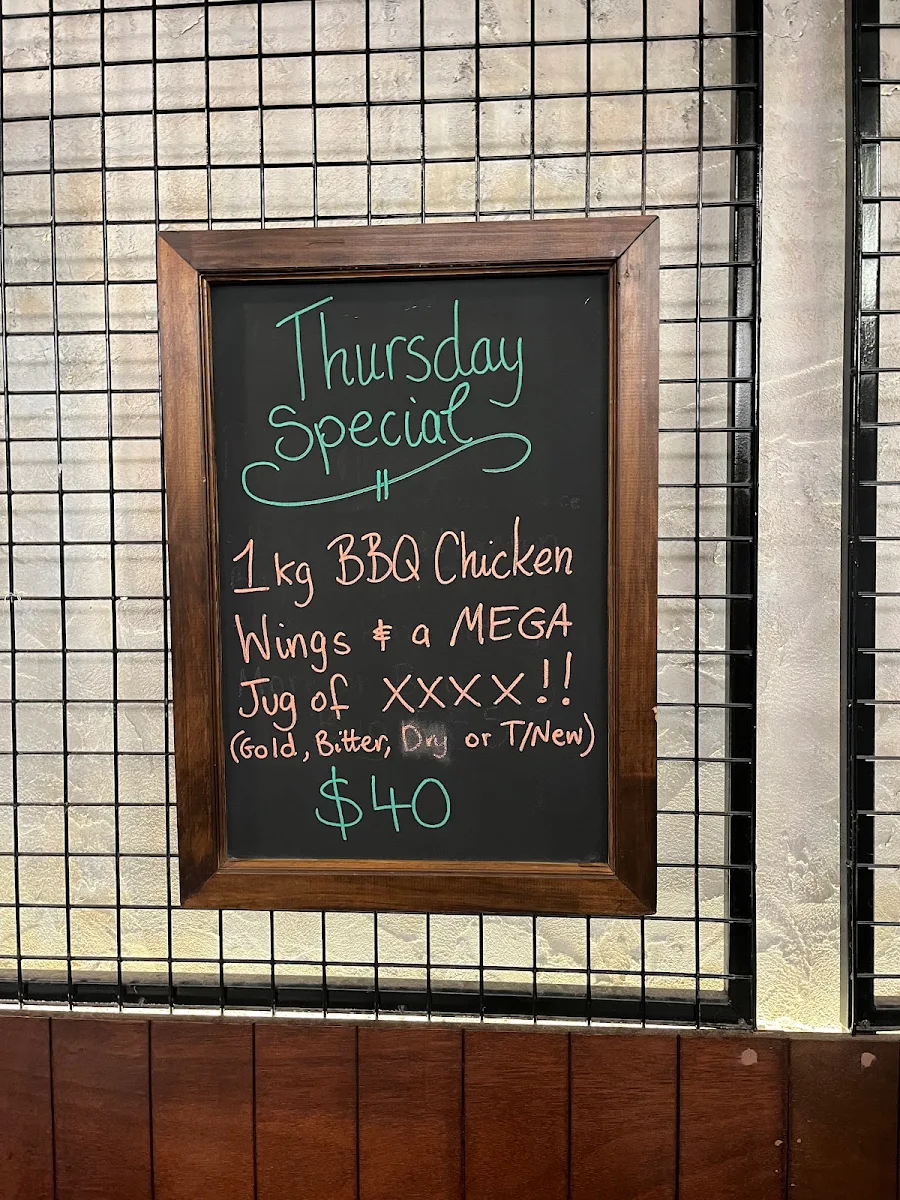 Thursday
Special
1kg BBQ Chicken
Wings & a MEGA
Jug of XXXX!!
(Gold, Bitter, Dry or T/New)
$40